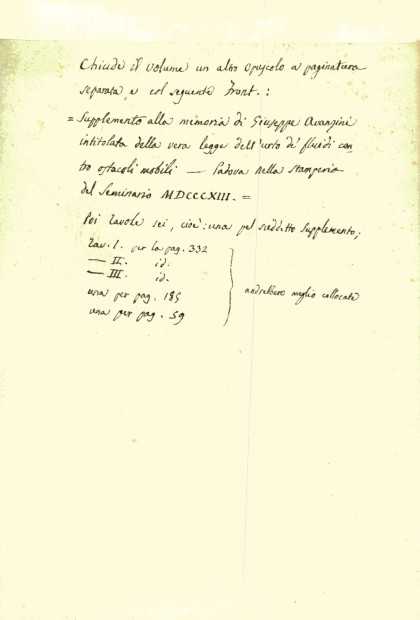 Chiude il volume un altro opuscolo a paginatura
separata, e col seguente Front.:
= Supplemento alla memoria di Giuseppe Avanzini
intitolata della vera legge dell'urto de' fluidi con
tro ostacoli mobili — Padova nella stamperia
del Seminario MDCCCXIII. =
Poi tavole sei, cioè: una pel suddetto supplemento;
tav. I. per la pag. 332
— II. id.
— III. id.
una per pag. 185
una per pag. 59
andrebbero meglio collocate